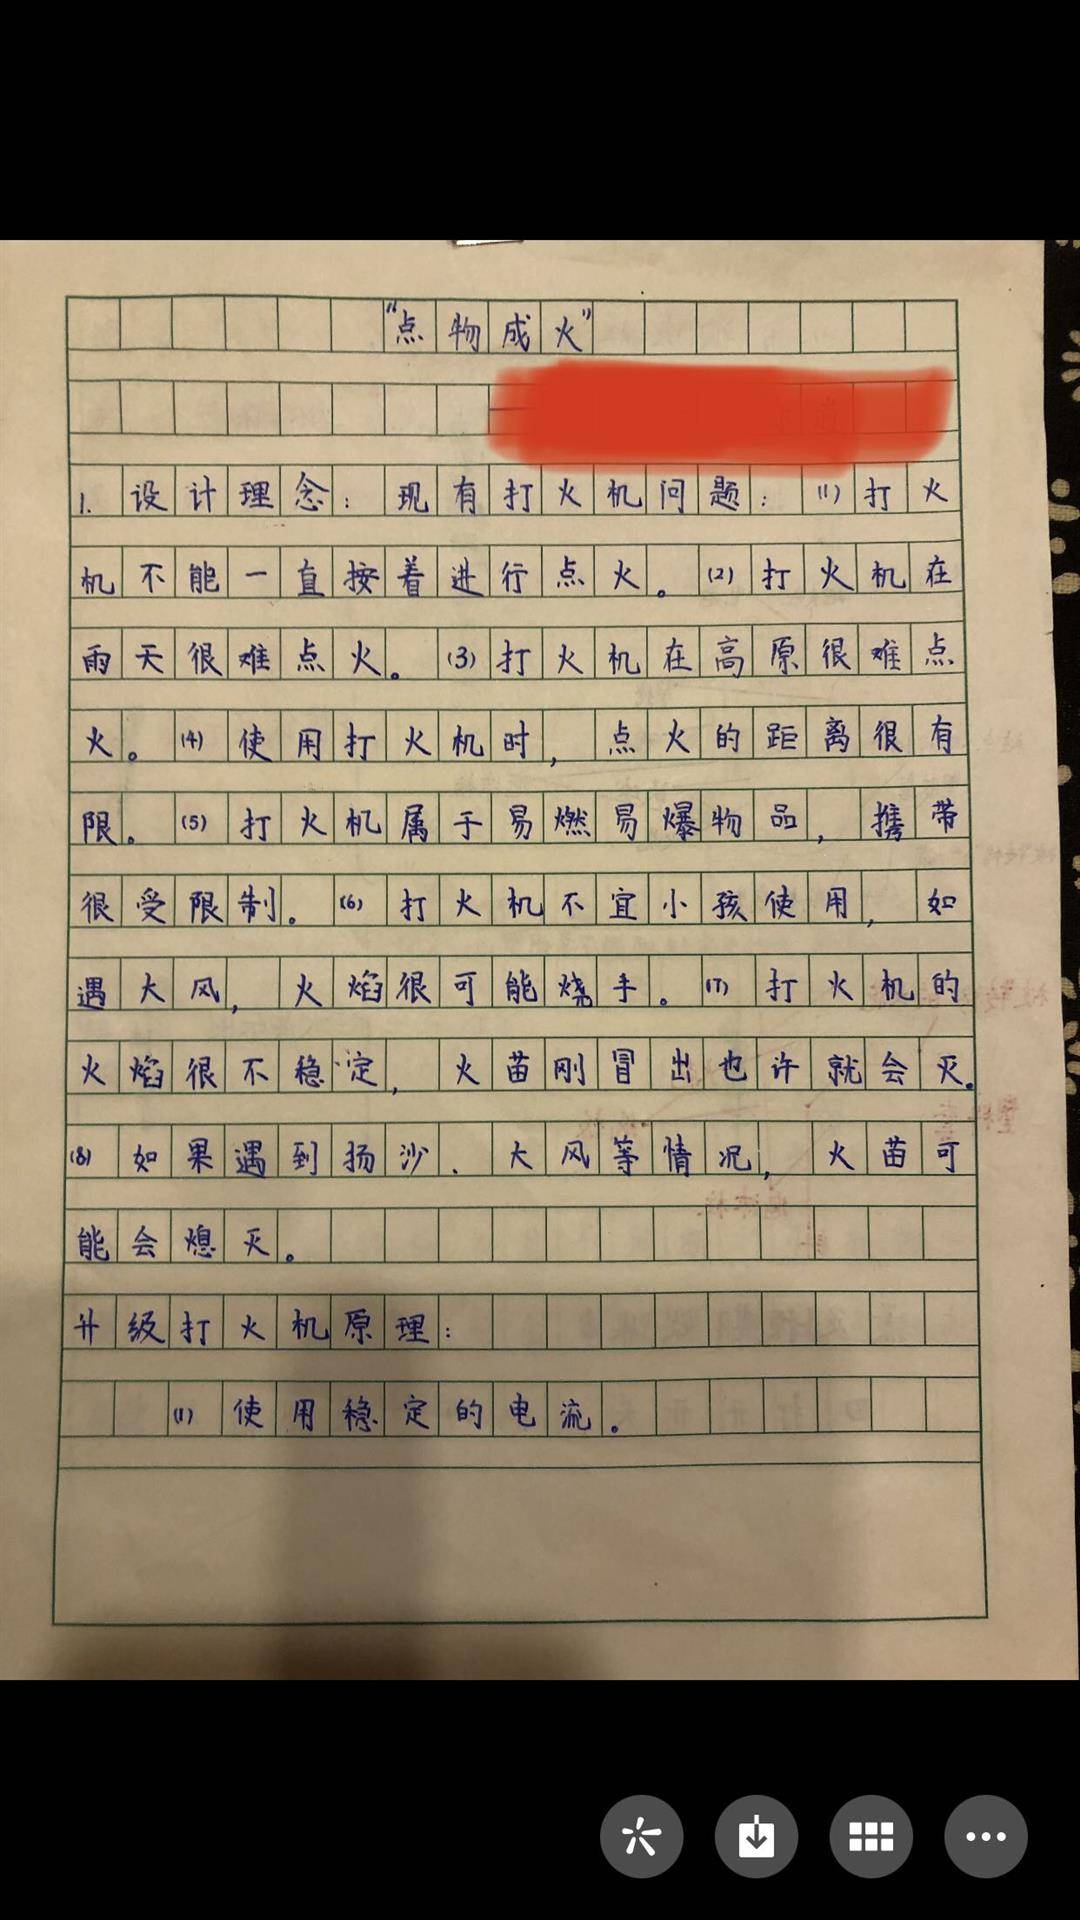 “点物成火”
1. 设计理念：现有打火机问题：(1)打火
机不能一直按着进行点火。(2)打火机在
雨天很难点火。(3)打火机在高原很难点
火。(4)使用打火机时，点火的距离很有
限。(5)打火机属于易燃易爆物品，携带
很受限制。(6)打火机不宜小孩使用，如
遇大风，火焰很可能烧手。(7)打火机的
火焰很不稳定，火苗刚冒出也许就会灭。
(8)如果遇到扬沙、大风等情况，火苗可
能会熄灭。
升级打火机原理：
(1)使用稳定的电流。